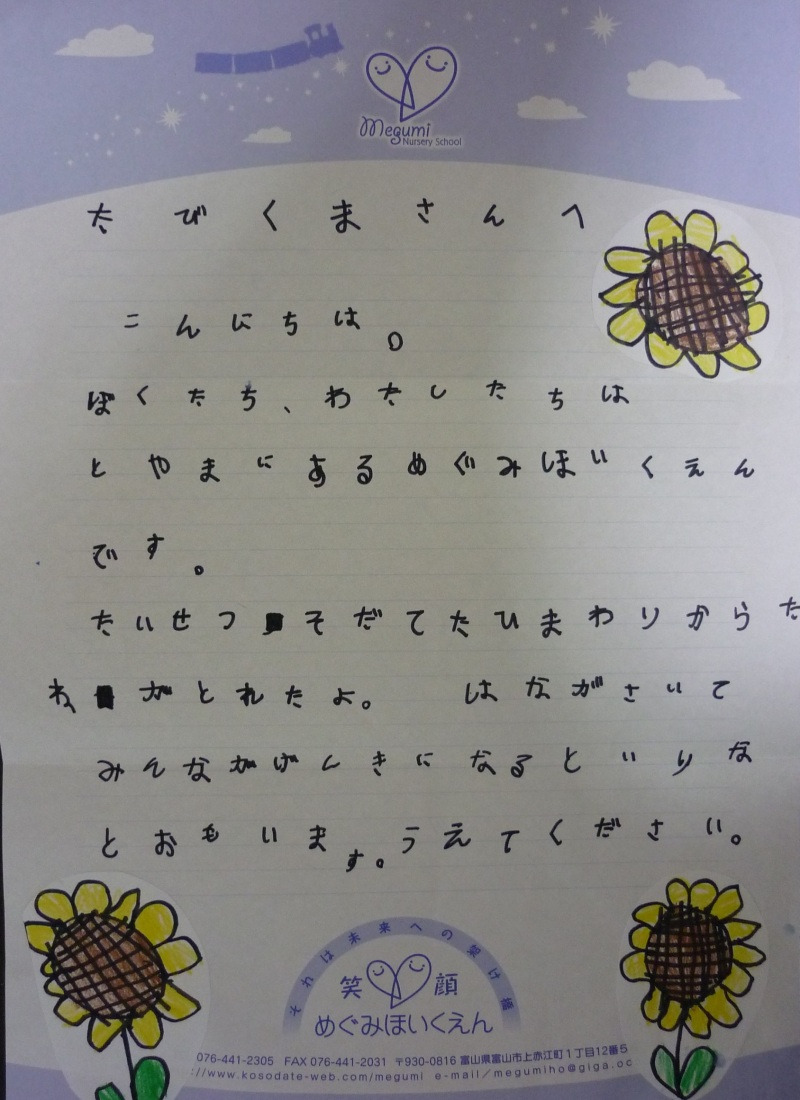 Megumi
Nursery School
たびくまさんへ
こんにちは。
ぼくたち、わたしたちは
とやまにあるめぐみほいくえん
です。
たいせつそだてたひまわりからた
ねがとれたよ。 はながさいて
みんながげんきになるといいな
とおもいます。うえてください。
それは未来への架け橋
笑顔
めぐみほいくえん
076-441-2305 FAX 076-441-2031 〒930-0816 富山県富山市上赤江町1丁目12番5
://www.kosodate-web.com/megumi e-mail/megumiho@giga.oc